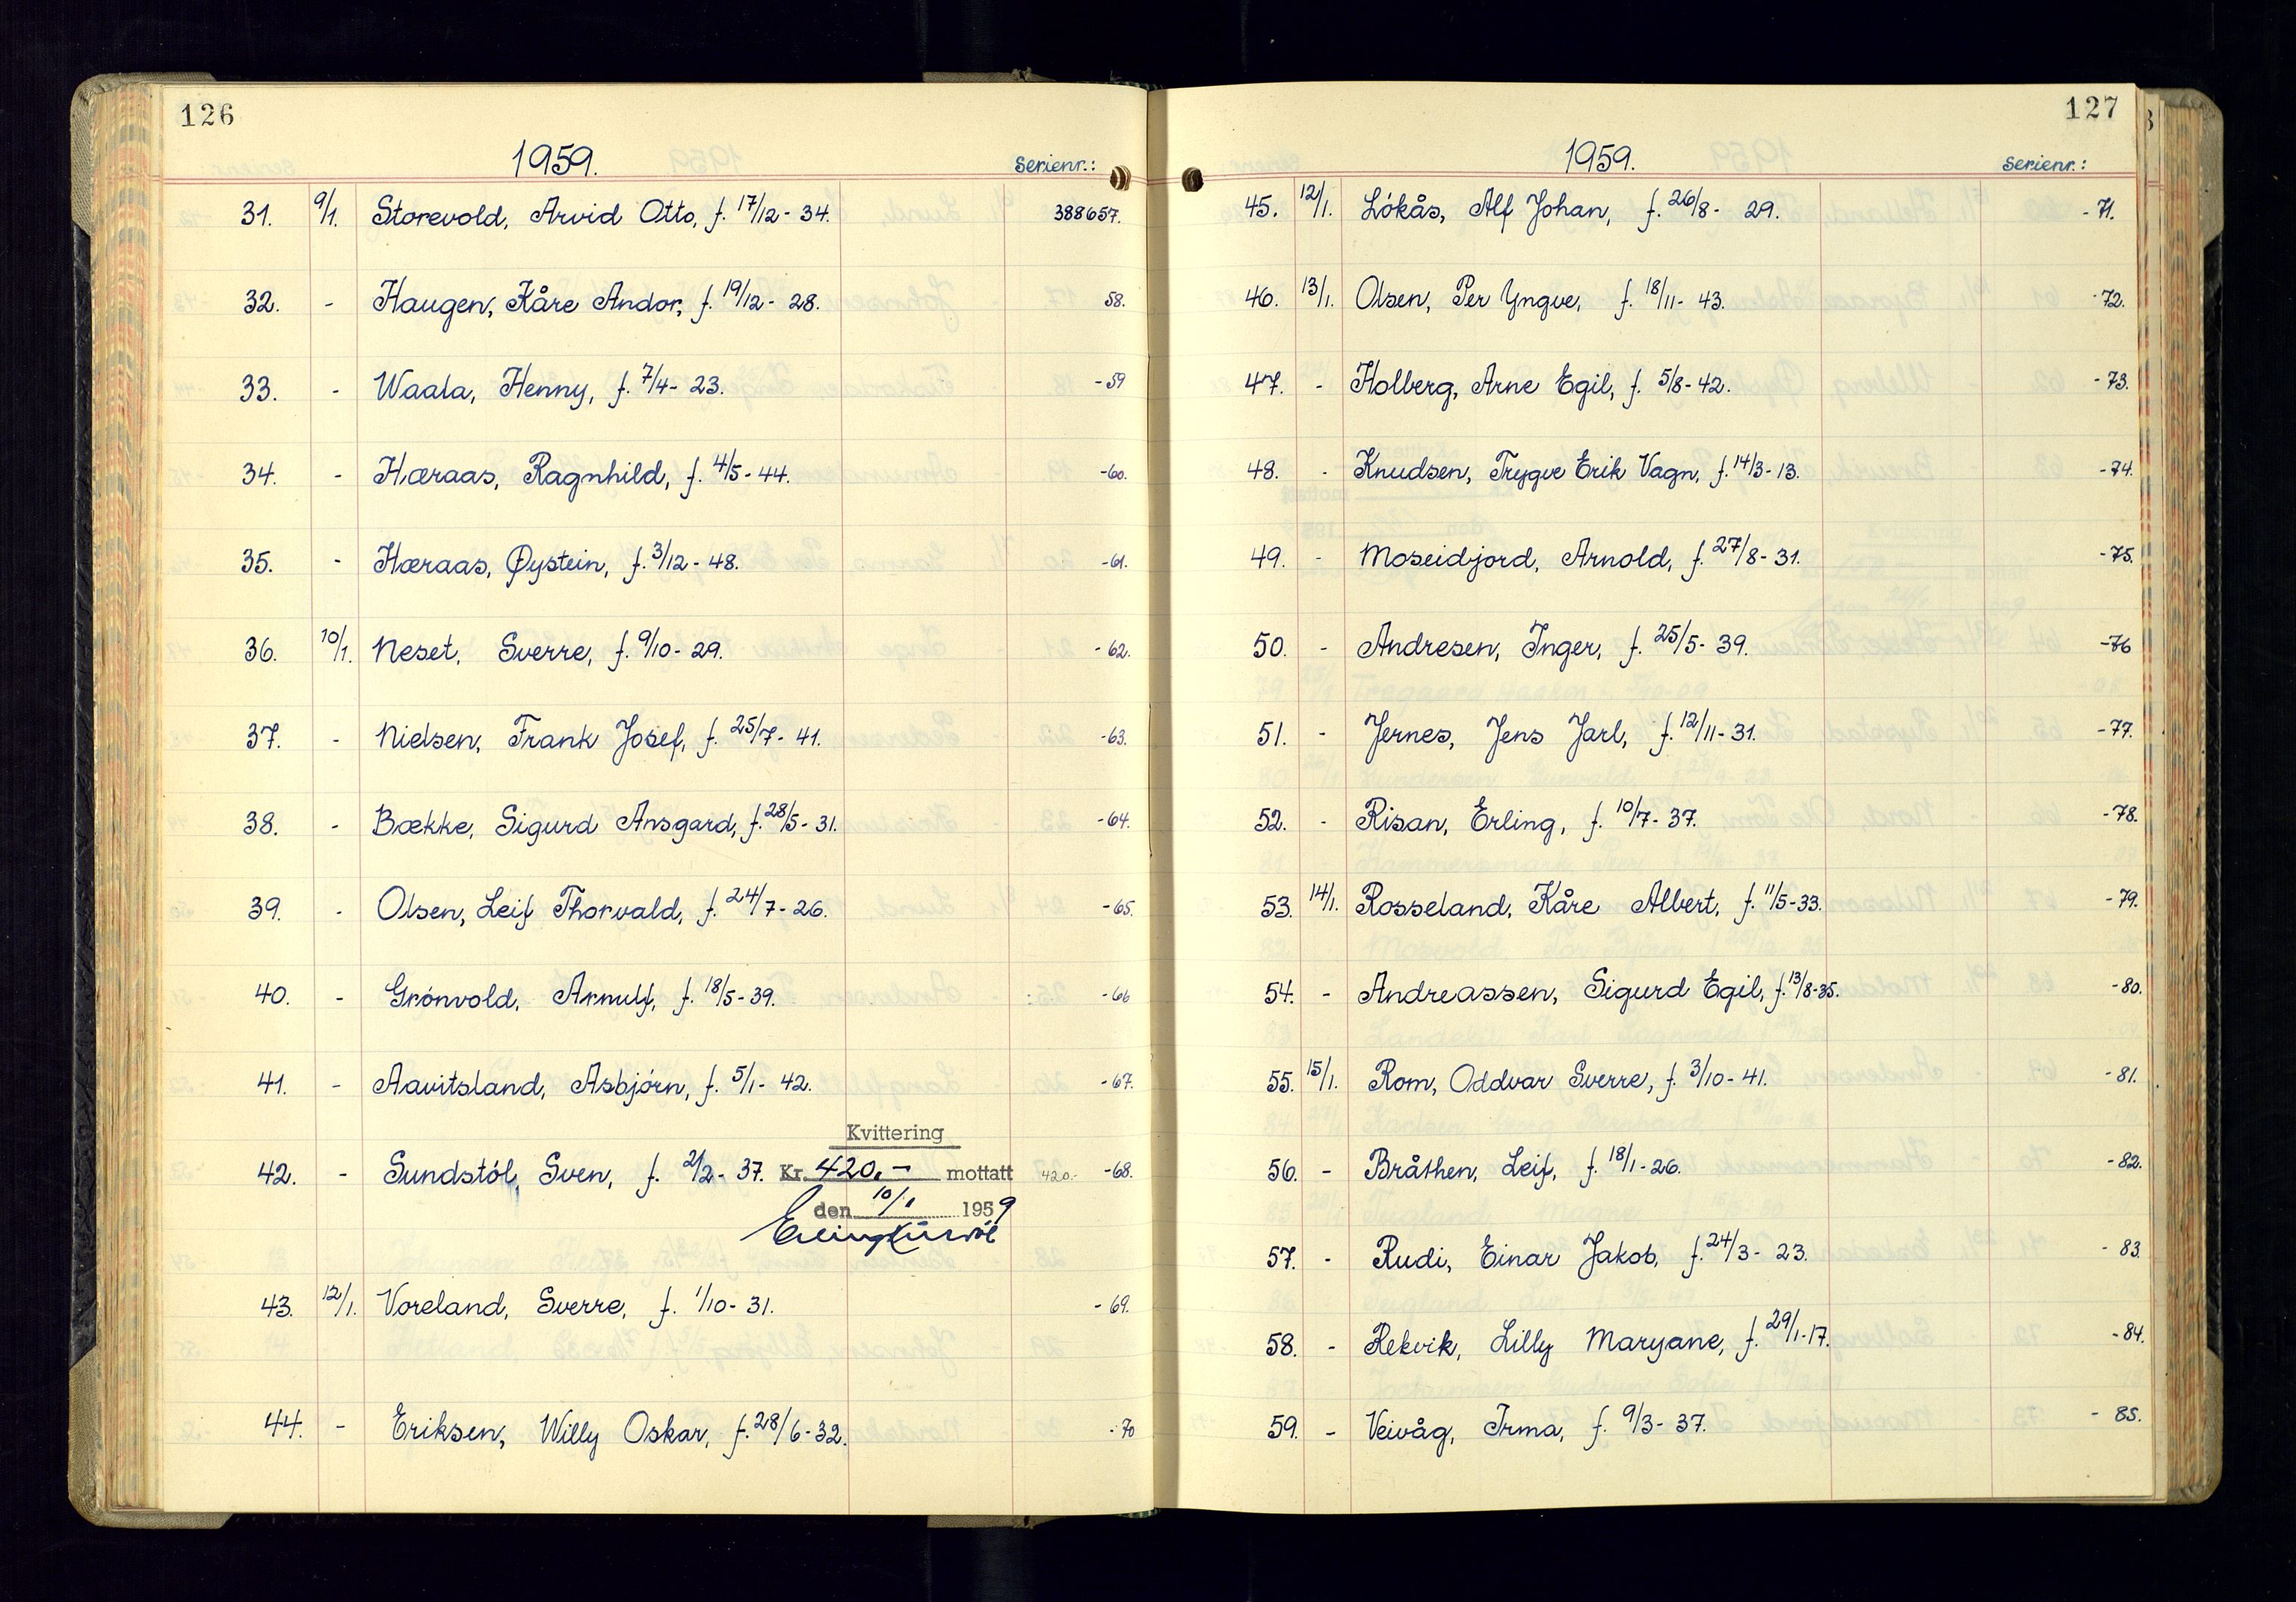 126
1959.
Serienr.:
31. 9/1. Storevold, Arvid Otto, f. 17/12 - 34. 388657.
32. - Haugen, Kåre Andor, f. 19/12 - 28. 58.
33. - Waala, Henny, f. 7/4 - 23. -59
34. - Hæraas, Ragnhild, f. 4/5 - 44. -60.
35. - Hæraas, Øystein, f. 3/12 - 48. -61.
36. 10/1. Neset, Sverre, f. 9/10 - 29. -62.
37. - Nielsen, Frank Josef, f. 25/7 - 41. -63.
38. - Bække, Sigurd Ansgard, f. 28/5 - 31. -64.
39. - Olsen, Leif Thorvald, f. 24/7 - 26. -65.
40. - Grónvold, Arnulf, f. 18/5 - 39. -66
41. - Aavitsland, Asbjórn, f. 5/1 - 42. -67.
Kvittering
42. - Sundstól, Sven, f. 2/2 - 37. Kr. 420,- mottatt 420.- -68.
den 10/1 1959
43. 12/1. Voreland, Sverre, f. 1/10 - 31. -69.
44. - Eriksen, Willy Oskar, f. 28/6 - 32. -70
127
1959.
Serienr.:
45. 12/1. Lókås, Alf Johan, f. 26/8 - 29. -71.
46. 13/1. Olsen, Per Yngve, f. 18/11 - 43. -72.
47. - Holberg, Arne Egil, f. 5/8 - 42. -73.
48. - Knudsen, Trygve Erik Vagn, f. 14/3 - 13. -74.
49. - Moseidjord, Arnold, f. 27/8 - 31. -75.
50. - Andresen, Inger, f. 25/5 - 39. -76
51. - Jernes, Jens Jarl, f. 12/11 - 31. -77.
52. - Risan, Erling, f. 10/7 - 37. -78.
53. 14/1. Rosseland, Kåre Albert, f. 11/5 - 33. -79.
54. - Andreassen, Sigurd Egil, f. 13/8 - 35. -80.
55. 15/1. Rom, Oddvar Sverre, f. 3/10 - 41. -81.
56. - Bråthen, Leif, f. 18/1 - 26. -82.
57. - Rudi, Einar Jakob, f. 24/3 - 23. -83
58. - Rekvik, Lilly Maryane, f. 29/1 - 17. -84.
59. - Veivåg, Irma, f. 9/3 - 37. -85.